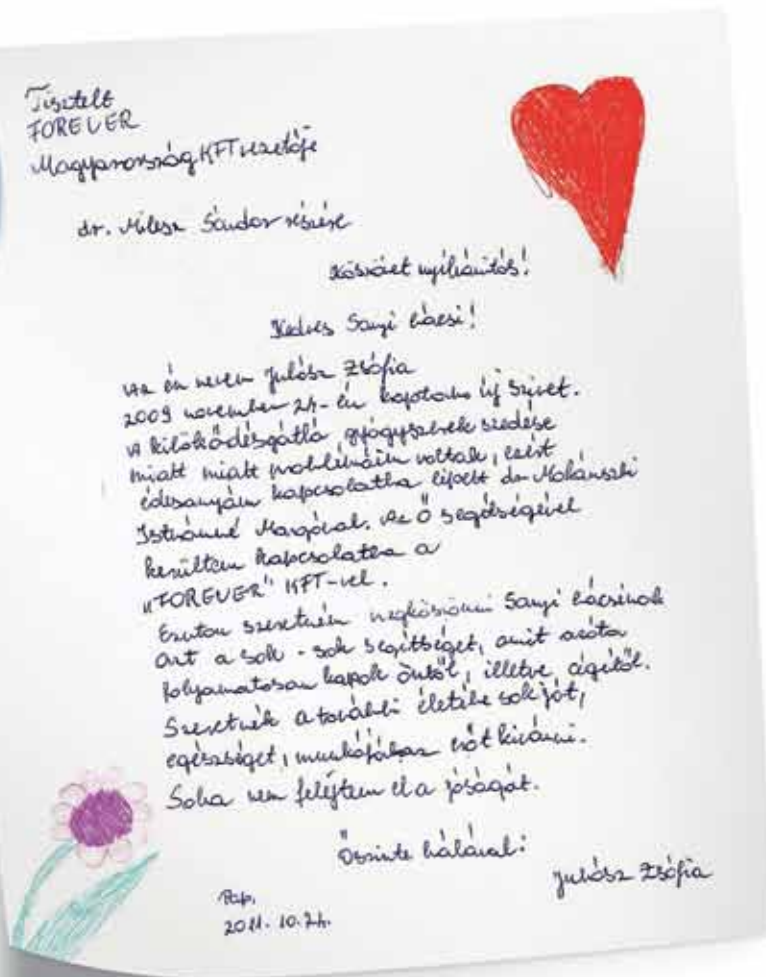 Tisztelt
FOREVER
Magyarország KFT vezetője
dr. Milesz Sándor részére
Köszönet nyilvánítás!
Kedves Sanyi bácsi!
Az én nevem Juhász Zsófia
2009 november 24-én kaptam új szívet.
A kilökődésgátló gyógyszerek szedése
miatt miatt problémáim voltak, ezért
édesanyám kapcsolatba lépett dr. Molánszki
Istvánné Margóval. Az Ő segítségével
kerültem kapcsolatba a
"FOREVER" KFT-vel.
Ezúton szeretném megköszönni Sanyi bácsinak
azt a sok - sok segítséget, amit azóta
folyamatosan kapok öntől, illetve, cégétől.
Szeretnék a további életébe sok jót,
egészséget, munkájához erőt kívánni.
Soha nem felejtem el a jóságát.
Őszinte hálával:
Juhász Zsófia
Pap,
2011. 10. 24.